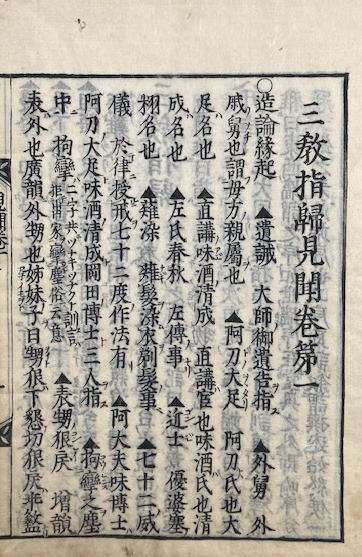 三教指歸見聞卷第一
○造論緣起 ▲遺誡 大師御遺告指 ▲外舅 外
戚舅也謂母方親屬也 ▲阿刀大足 阿刀氏也大
足名也 ▲直講味酒清成 直講官也味酒氏也清
成名也 ▲左氏春秋 左傳事 ▲近士 優婆塞
翙名也 ▲薙染 薙髮染衣剃髮事 ▲七十二威
儀 於律授戒七十二度作法有 ▲阿大夫味博士
阿刀大足味酒清成岡田博士三人指 ▲拘攣之塵
中 拘攣 二字共ツナキツナク訓 言 拒謂家攣塵俗云意 ▲表甥狠戾 增韻
表外也廣韻外甥也姊妹子曰甥狠下懇切狠戾非盭